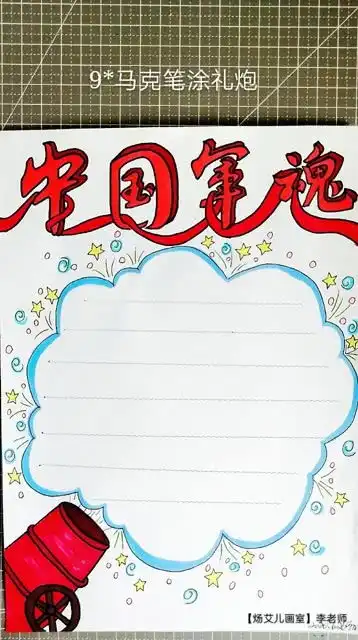 9*马克笔涂礼炮
中国军魂
【炀艾儿画室】李老师